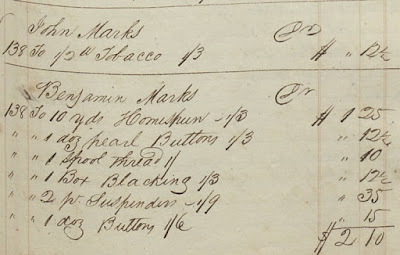 John Marks Dr
138 To 1/2 lb Tobacco 1/3 $ " 12 1/2
Benjamin Marks Dr
138 To 10 yds Homespun $ 1 25
" " 1 doz pearl Buttons 1/3 " 12 1/2
" " 1 Spool thread 1/ " 10
" " 1 Box Blacking 1/3 " 12 1/2
" " 2 pr Suspenders 1/9 " 35
" " 1 doz Buttons 1/6 " 15
$ 2 10